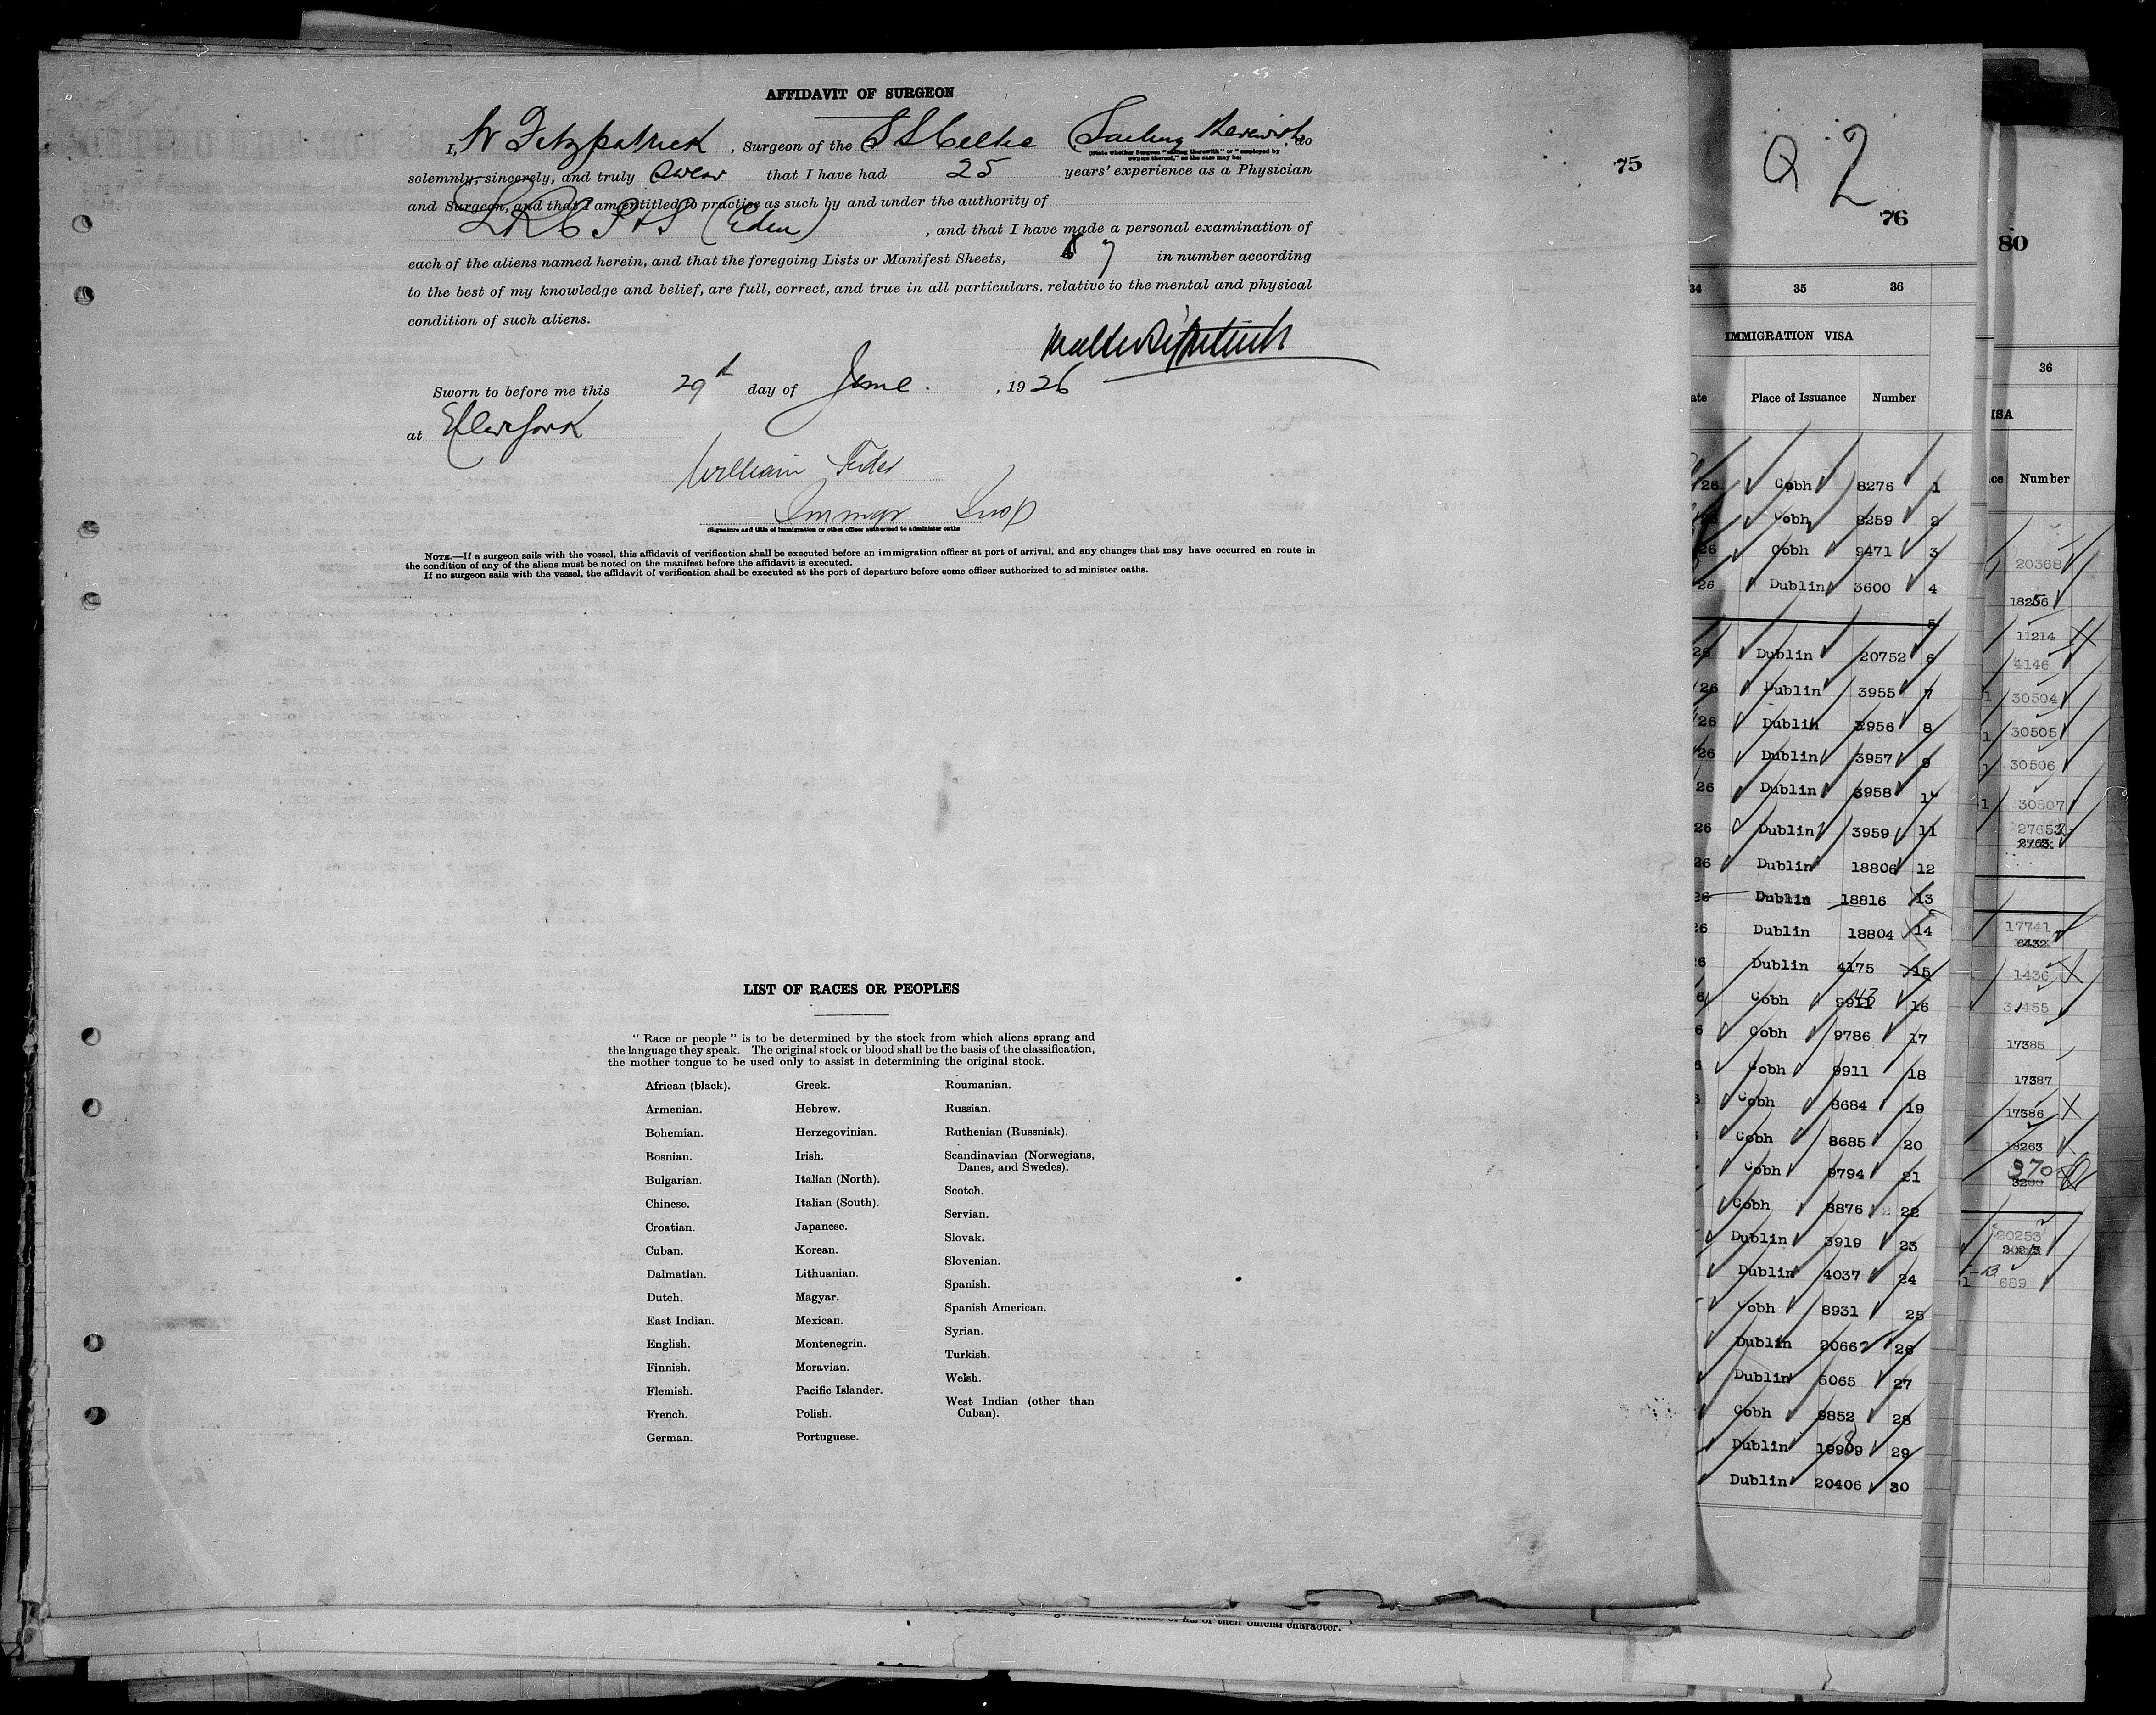 AFFIDAVIT OF SURGEON
I, W Fitzpatrick, Surgeon of the SS Celtic Sailing therewith, do
(State whether Surgeon "sailing therewith" or "employed by
owners thereof," as the case may be)
solemnly, sincerely, and truly swear that I have had 25 years' experience as a Physician
and Surgeon, and that I am entitled to practise as such by and under the authority of
LRCP&S (Edin), and that I have made a personal examination of
each of the aliens named herein, and that the foregoing Lists or Manifest Sheets, 7 in number according
to the best of my knowledge and belief, are full, correct, and true in all particulars, relative to the mental and physical
condition of such aliens.
Walter Fitzpatrick
Sworn to before me this 29th day of June, 1926
at New York
William
Immgr Insp
(Signature and title of immigration or other officer authorized to administer oaths
NOTE.—If a surgeon sails with the vessel, this affidavit of verification shall be executed before an immigration officer at port of arrival, and any changes that may have occurred en route in
the condition of any of the aliens must be noted on the manifest before the affidavit is executed.
If no surgeon sails with the vessel, the affidavit of verification shall be executed at the port of departure before some officer authorized to administer oaths.
LIST OF RACES OR PEOPLES
"Race or people" is to be determined by the stock from which aliens sprang and
the language they speak. The original stock or blood shall be the basis of the classification,
the mother tongue to be used only to assist in determining the original stock.
African (black).
Armenian.
Bohemian.
Bosnian.
Bulgarian.
Chinese.
Croatian.
Cuban.
Dalmatian.
Dutch.
East Indian.
English.
Finnish.
Flemish.
French.
German.
Greek.
Hebrew.
Herzegovinian.
Irish.
Italian (North).
Italian (South).
Japanese.
Korean.
Lithuanian.
Magyar.
Mexican.
Montenegrin.
Moravian.
Pacific Islander.
Polish.
Portuguese.
Roumanian.
Russian.
Ruthenian (Russniak).
Scandinavian (Norwegians,
Danes, and Swedes).
Scotch.
Servian.
Slovak.
Slovenian.
Spanish.
Spanish American.
Syrian.
Turkish.
Welsh.
West Indian (other than
Cuban).
75
Q 2
76
34 35 36
IMMIGRATION VISA
Place of Issuance Number
26 Cobh 8276 1
Cobh 8259 2
26 Cobh 9471 3
26 Dublin 3600 4
5
26 Dublin 20752 6
26 Dublin 3955 7
26 Dublin 3956 8
26 Dublin 3957 9
26 Dublin 3958 10
26 Dublin 3959 11
26 Dublin 18806 12
26 Dublin 18816 13
26 Dublin 18804 14
6 Dublin 4175 15
6 Cobh 16
6 Cobh 9786 17
Cobh 9911 18
Cobh 8684 19
Cobh 8685 20
Cobh 9794 21
Cobh 8876 22
Dublin 3919 23
Dublin 4037 24
Cobh 8931 25
Dublin 20662 26
Dublin 5065 27
Cobh 9852 28
Dublin 29
Dublin 20406 30
80
36
ISA
ce Number
20368
11214
4146
1 30504
1 30505
1 30506
1 30507
17741
1436
17385
17387
17386
18263
370
20253
689
of his or their official character.